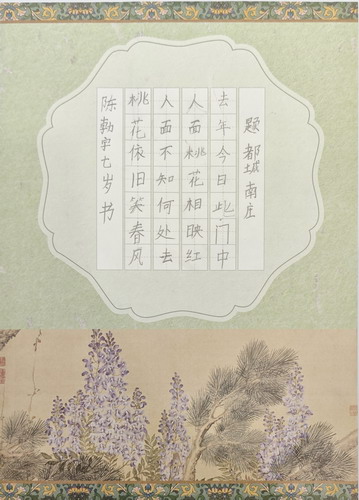 题都城南庄
去年今日此门中
人面桃花相映红
人面不知何处去
桃花依旧笑春风
陈勃宇七岁书